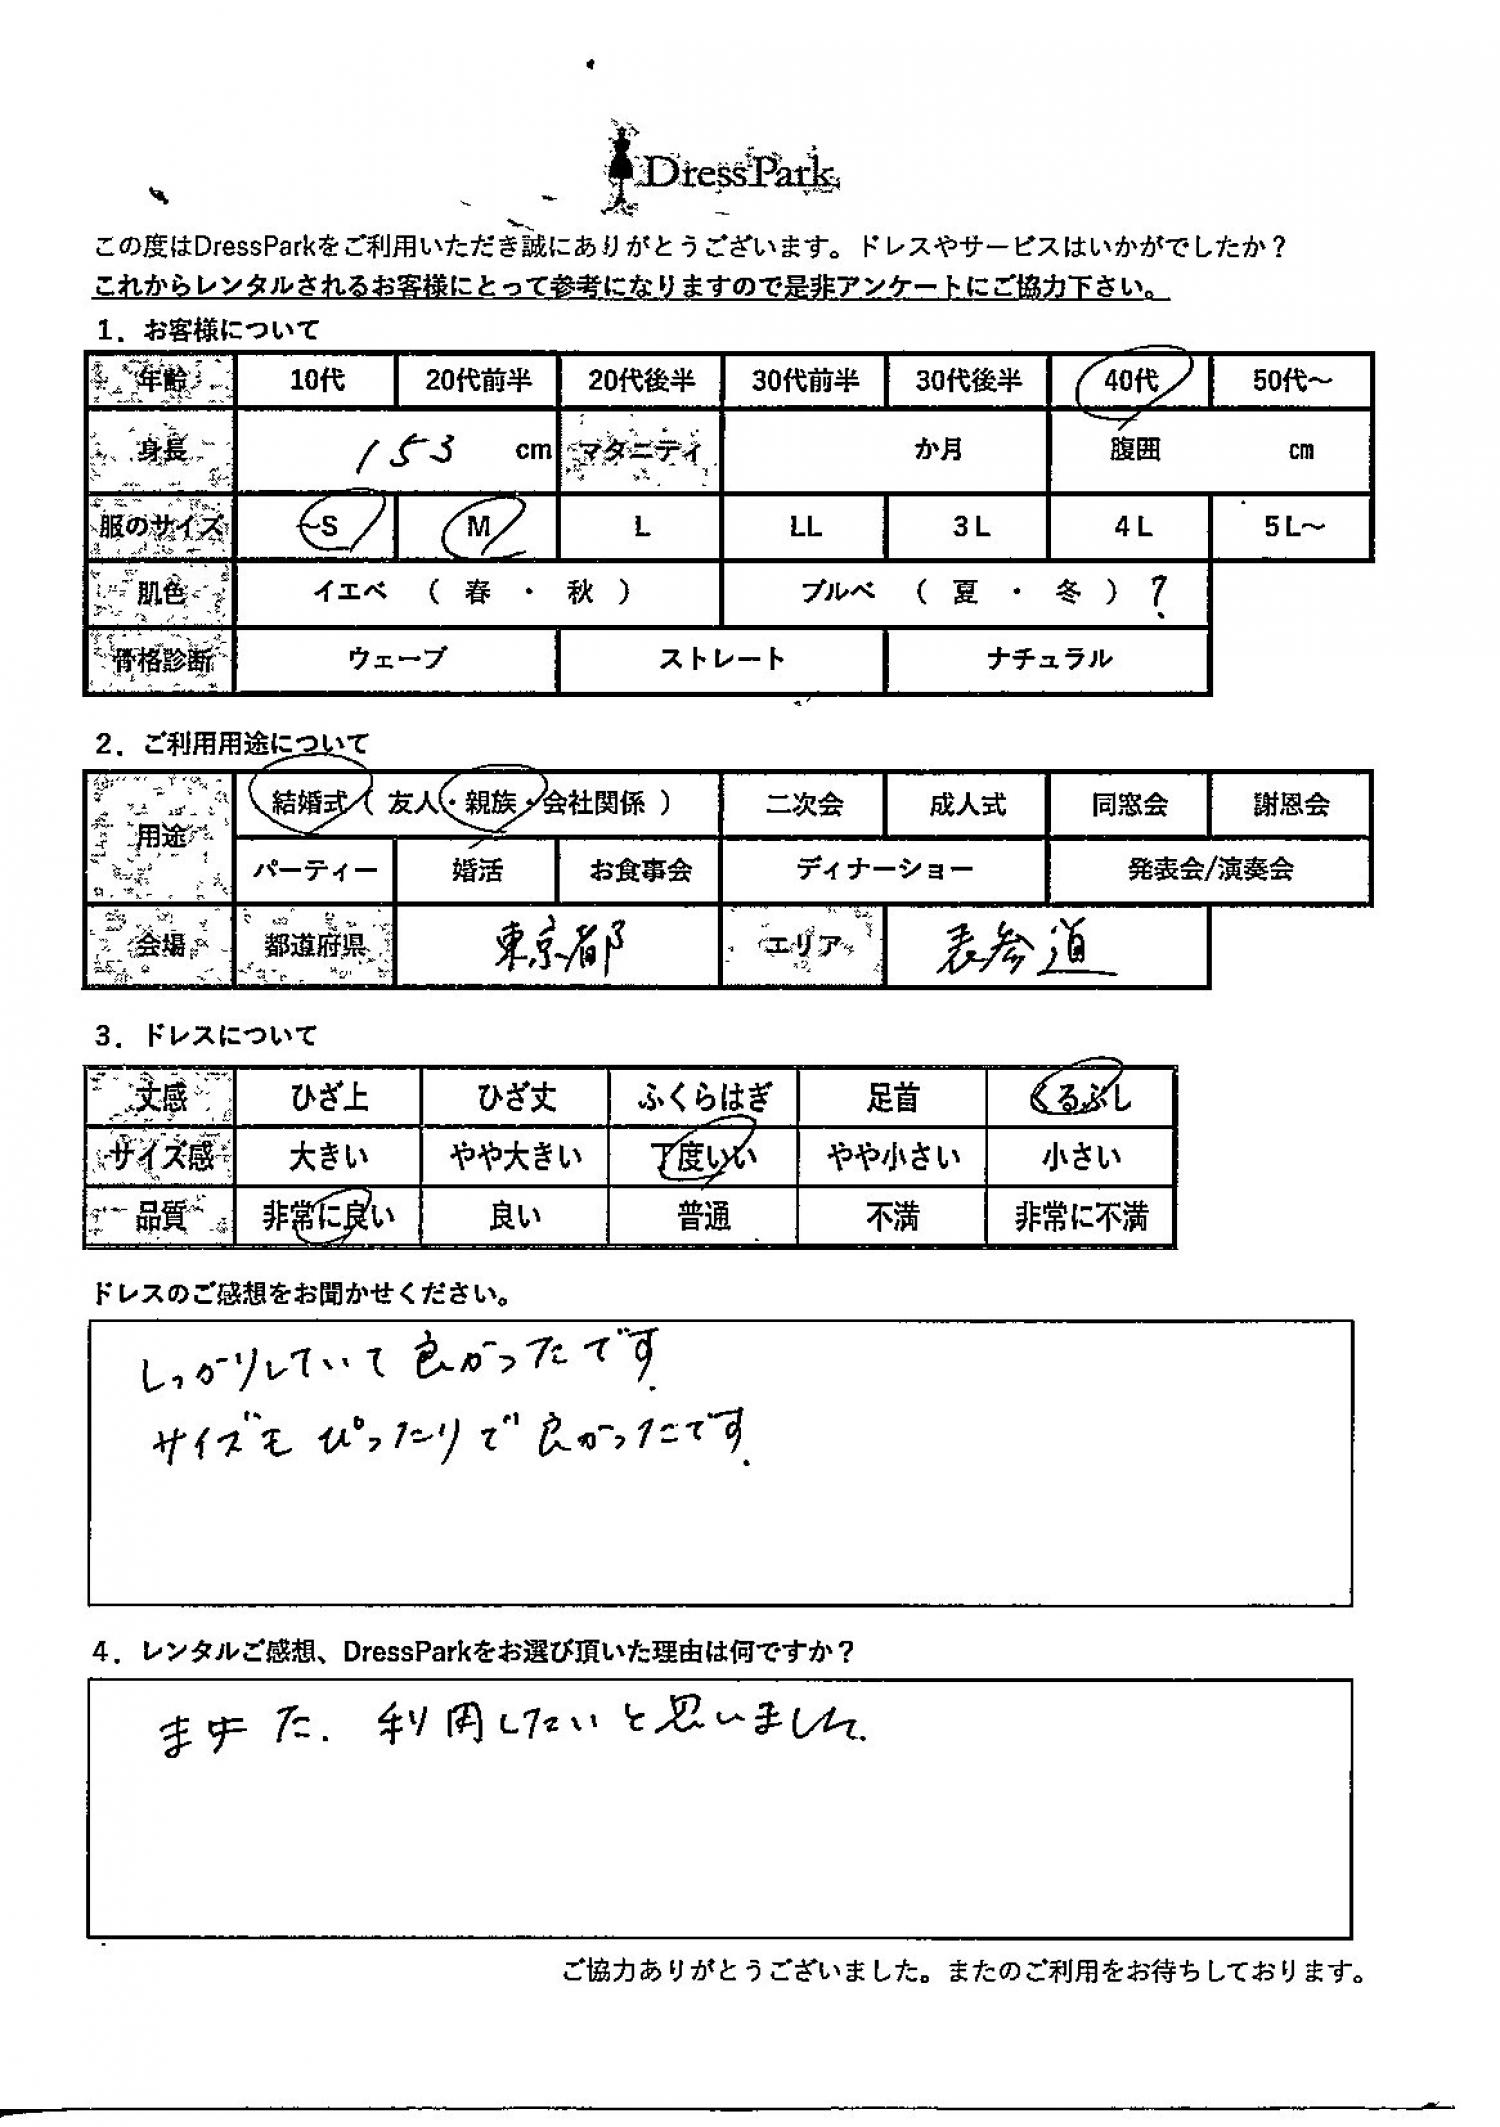 DressPark
この度はDressParkをご利用いただき誠にありがとうございます。ドレスやサービスはいかがでしたか？
これからレンタルされるお客様にとって参考になりますので是非アンケートにご協力下さい。
1．お客様について
年齢 10代 20代前半 20代後半 30代前半 30代後半 40代 50代～
身長 153 cm マタニティ か月 腹囲 cm
服のサイズ ～S M L LL 3L 4L 5L～
肌色 イエベ （ 春 ・ 秋 ） ブルベ （ 夏 ・ 冬 ） ?
骨格診断 ウェーブ ストレート ナチュラル
2．ご利用用途について
用途 結婚式（ 友人・親族・会社関係 ） 二次会 成人式 同窓会 謝恩会
パーティー 婚活 お食事会 ディナーショー 発表会/演奏会
会場 都道府県 東京都 エリア 表参道
3．ドレスについて
丈感 ひざ上 ひざ丈 ふくらはぎ 足首 くるぶし
サイズ感 大きい やや大きい 丁度いい やや小さい 小さい
品質 非常に良い 良い 普通 不満 非常に不満
ドレスのご感想をお聞かせください。
しっかりしていて良かったです.
サイズもぴったりで良かったです.
4．レンタルご感想、DressParkをお選び頂いた理由は何ですか？
た. 利用したいと思いました.
ご協力ありがとうございました。またのご利用をお待ちしております。